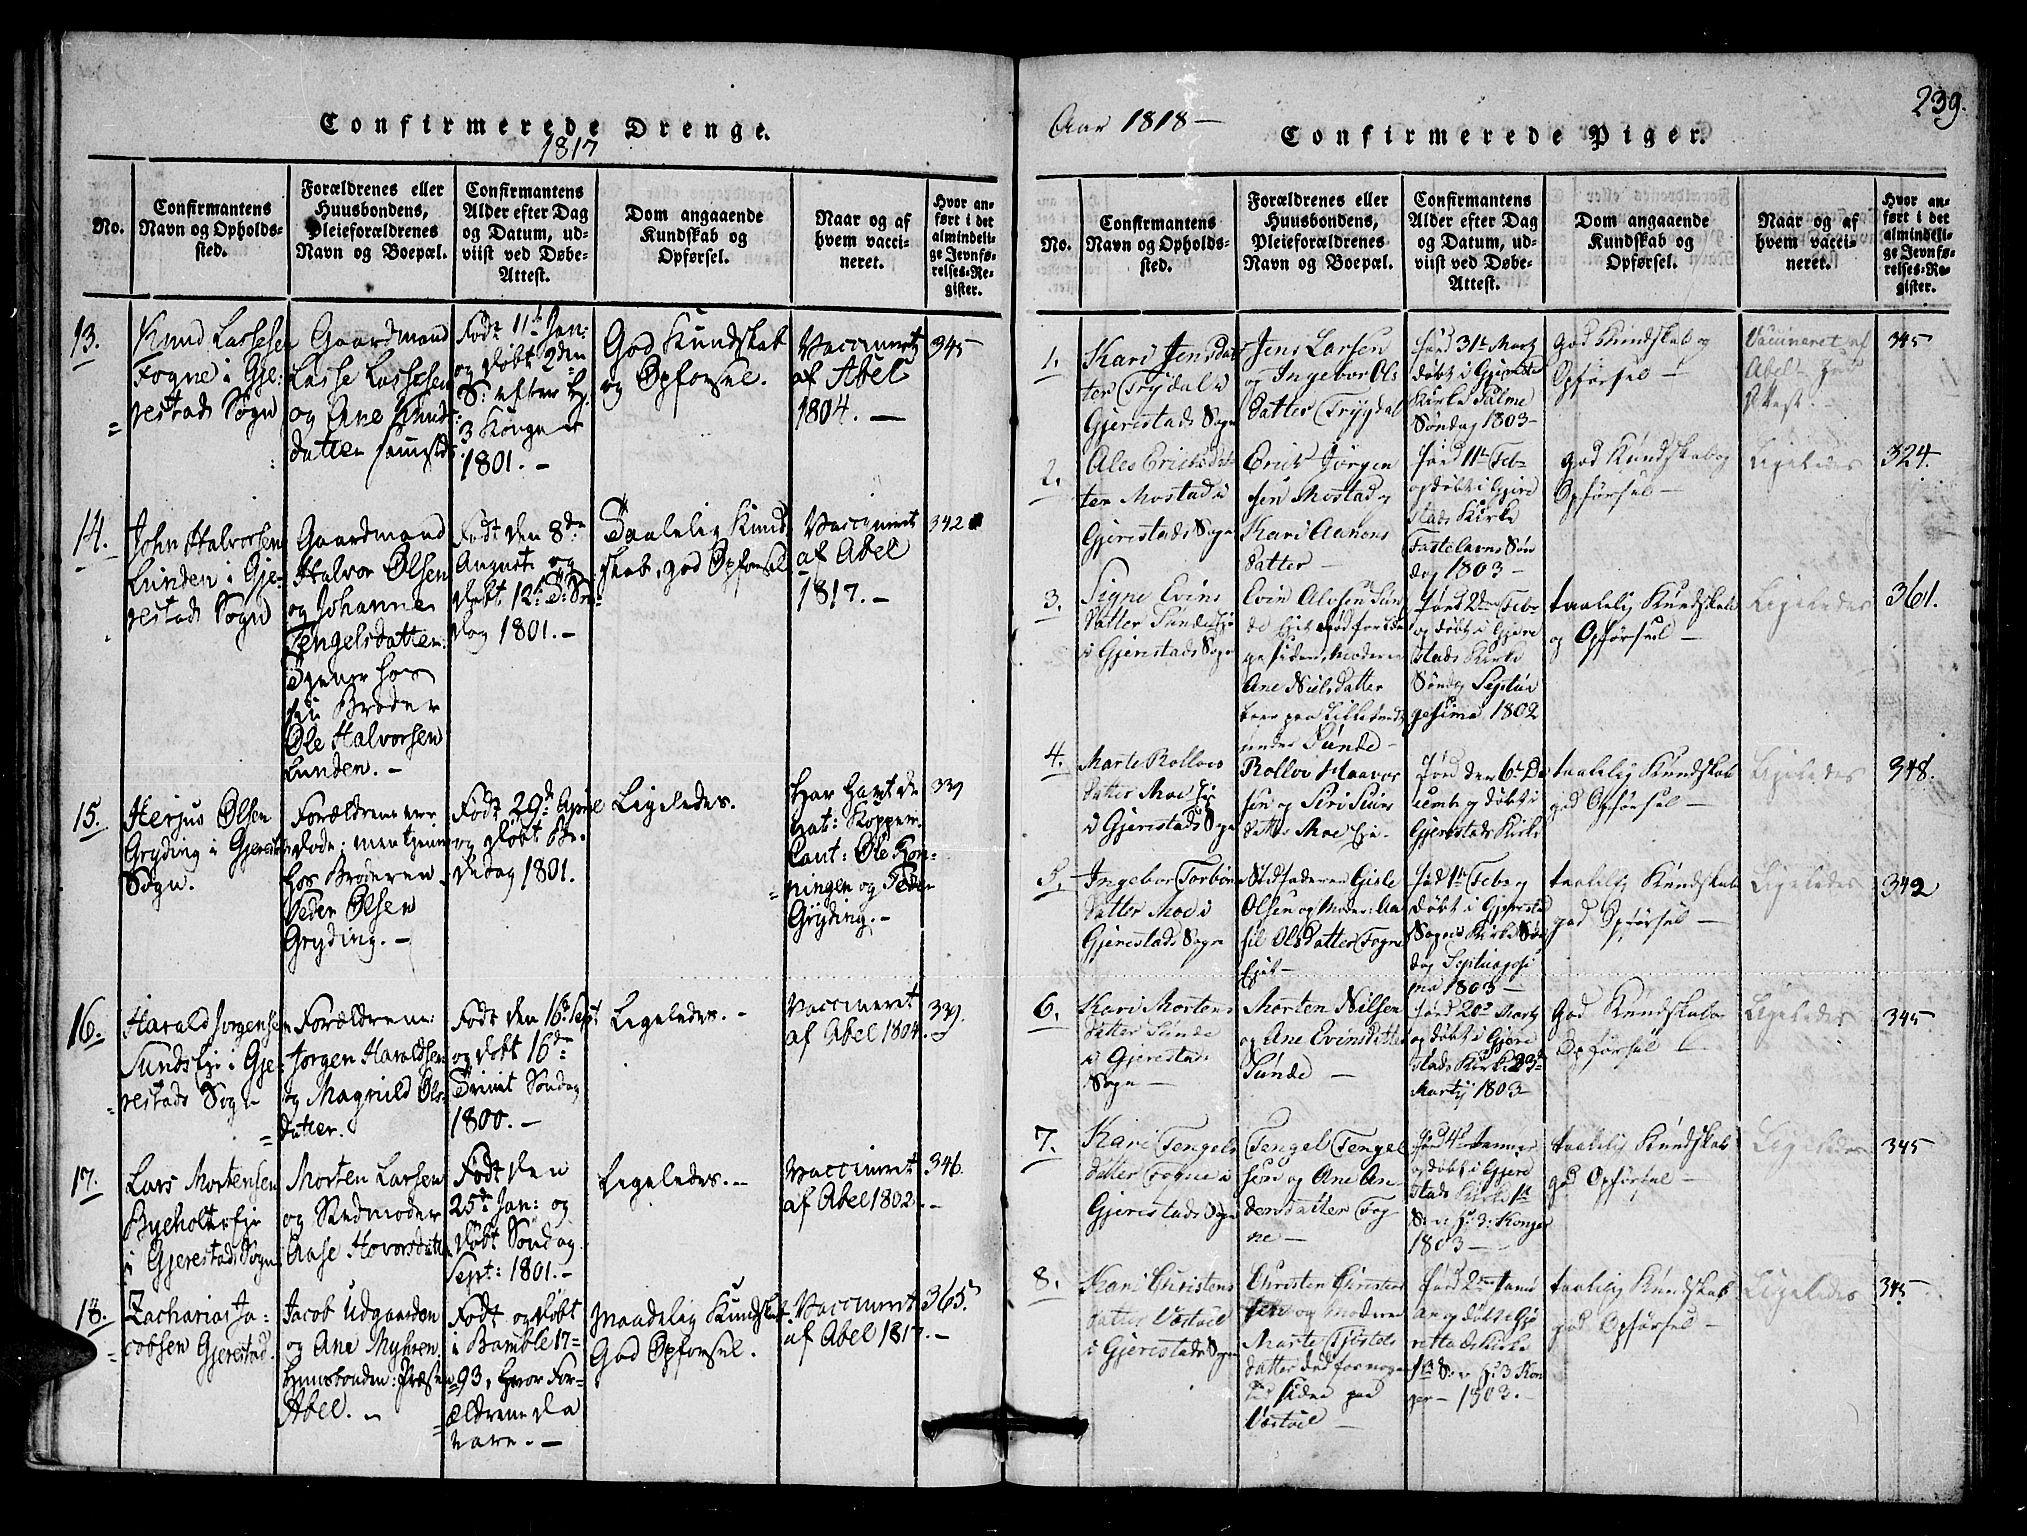 Confirmerede Drenge.
1817
No.
Confirmantens
Navn og Opholds-
sted.
Forældrenes eller
Huusbondens,
Pleieforældrenes
Navn og Boepæl.
Confirmantens
Alder efter Dag
og Datum, ud-
viist ved Døbe-
Attest.
Dom angaaende
Kundskab og
Opførsel.
Naar og af
hvem vacci-
neret.
Hvor an-
ført i det
almindeli-
ge Jevnfø-
relses-Re-
gister.
13.
Knud Lassesen
Fogne i Gje-
restads Sogn
Gaardmand
Lasse Lassesen
og Ane Knuds
datter sammest:
Født 11te Jan:
og døbt 2den
S: efter H.
3 Konger
1801. -
God Kundskab
og Opførsel.
Vaccineret
af Abel
1804. -
345
14.
John Halvorsen
Lunden i Gje-
restads Sogn
Gaardmand
Halvor Olsen
og Johanne
Tengelsdatter:
Tjener hos
sin Broder
Ole Halvorsen
Lunden. -
Født den 8de
August og
døbt 12te S:
dag 1801. -
Taalelig Kund
skab, god Opførsel
Vaccineret
af Abel
1817. -
342
15.
Herjus Olsen
Gryding i Gjerestad
Sogn.
Forældrene ere
døde; men tjener
hos Broderen
Peder Olsen
Gryding. -
Født 29de April
og døbt Be-
dedag 1801.
Ligeledes.
Har havt de
nat: Kopper.
Cavt: Ole
og Peder
Gryding. -
339
16.
Harald Jorgensen
Sunds Eje i Gje-
restads Sogn
Forældrene:
Jorgen Haraldsen
og Magnild Ols-
datter.
Født den 16de Sept
og døbt 16de
Trinit Søndag
1800. -
Ligeledes. -
Vaccineret
af Abel 1804.
339.
17.
Lars Mortensen
Byeholts Eje
i Gjerestads Sogn
Morten Larsen
og Stedmoder
Aase Hovorsdatter
Født den
25de Jan: og
døbt Søndag
Sept: 1801. -
Ligeledes. -
Vaccineret
af Abel 1802. -
346.
18.
Zacharias Ja-
cobsen Gjerestad.
Jacob Udgaarden
og Ane Myhren
Huusbonden: Præsten
Abel. -
Født og døbt
i Bamble 17-
93, hvor For-
ældrene da
vare. -
Maadelig Kundskab
God Opførsel.
Vaccineret
af Abel 1817. -
365.
239.
Aar 1818 -
Confirmerede Piger.
No.
Confirmantens
Navn og Opholds-
sted.
Forældrenes eller
Huusbondens,
Pleieforældrenes
Navn og Boepæl.
Confirmantens
Alder efter Dag
og Datum, ud-
viist ved Døbe-
Attest.
Dom angaaende
Kundskab og
Opførsel.
Naar og af
hvem vacci-
neret.
Hvor an-
ført i det
almindeli-
ge Jevnfø-
relses-Re-
gister.
1.
Kari Jensdat
ter Trydal i
Gjerestads Sogn
Jens Larsen
og Ingebor Ols
datter Trygdal
født 31te Marts
døbt i Gjerestad
Kirke Palme
Søndag 1803 -
God Kundskab og
Opførsel -
Vaccineret af
Abel
Attest. -
345
2.
Ales Ericksdat
ter Mostad i
Gjerestads Sogn
Erick Jørgen
sen Mostad og
Kari Aanons
datter -
Født 11te Feb
og døbt i Gjere
stads Kirke
Fastelavns Søn
dag 1803 -
God Kundskab og
Opførsel -
Ligeledes
324.
3.
Signe Evins
datter Sunde Eje
i Gjerestads Sogn
Evin Alvsen Sun
de Eje
Moderen
Ane Nielsdatter
boer paa
under Sunde -
Født 2den Feb
og døbt i Gjere
stads Kirke
Søndag Septua
gesima 1802
taalelig Kundskab
og Opførsel -
Ligeledes
361.
4.
Marte Rollevs
datter Moe Eje
i Gjerestads Sogn
Rollov Haavor
sen og Siri
datter Moe Eje -
Født den 6te De
cemb og døbt i
Gjerestads Kirke
taalelig Kundskab
god Opførsel -
Ligeledes
348.
5.
Ingebor Torbjørns
datter Moe i
Gjerestads Sogn
Stedfaderen Gisle
Olsen og Moder:
Olsdatter Fogne
Ejet -
født 1te Feb og
døbt i Gjerestad
Sogns Kirke Søn
dag Septuagesi
ma 1803 -
taalelig Kundskab
god Opførsel -
Ligeledes
342
6.
Kari Mortens
datter Sunde
i Gjerestads
Sogn -
Morten Nilsen
og Ane Evinsdatter
Sunde -
født 20de Marts
og døbt i Gjere
stads Kirke 23de
Martij 1803 -
God Kundskab og
Opførsel -
Ligeledes
345
7.
Kari Tengels
datter Fogne i
Gjerestads Sogn
Tengel Tengel
sen og Ane An
dersdatter Fog
ne -
født 4de Januar
og døbt i Gjere
stads Kirke 1te
S. e. H: 3: Konger
1803 -
taalelig Kundskab
god Opførsel -
Ligeledes
345
8.
Kari Christens
datter Vestøl
i Gjerestads Sogn
Christen Christen
sen og Moderen
Marte Tjøstels
datter død for nogen
Tid siden paa
Vestøl -
født 2den Janu
ar og døbt i Gje
restads Kirke
1te S. e. H: 3 Kon
ger - 1803. -
taalelig Kundskab
god Opførsel -
Ligeledes
345